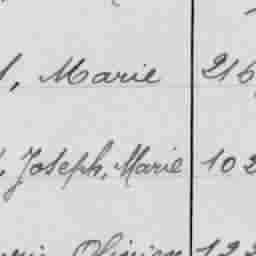 , Marie 216
Joseph, Marie 102
Olivier 122